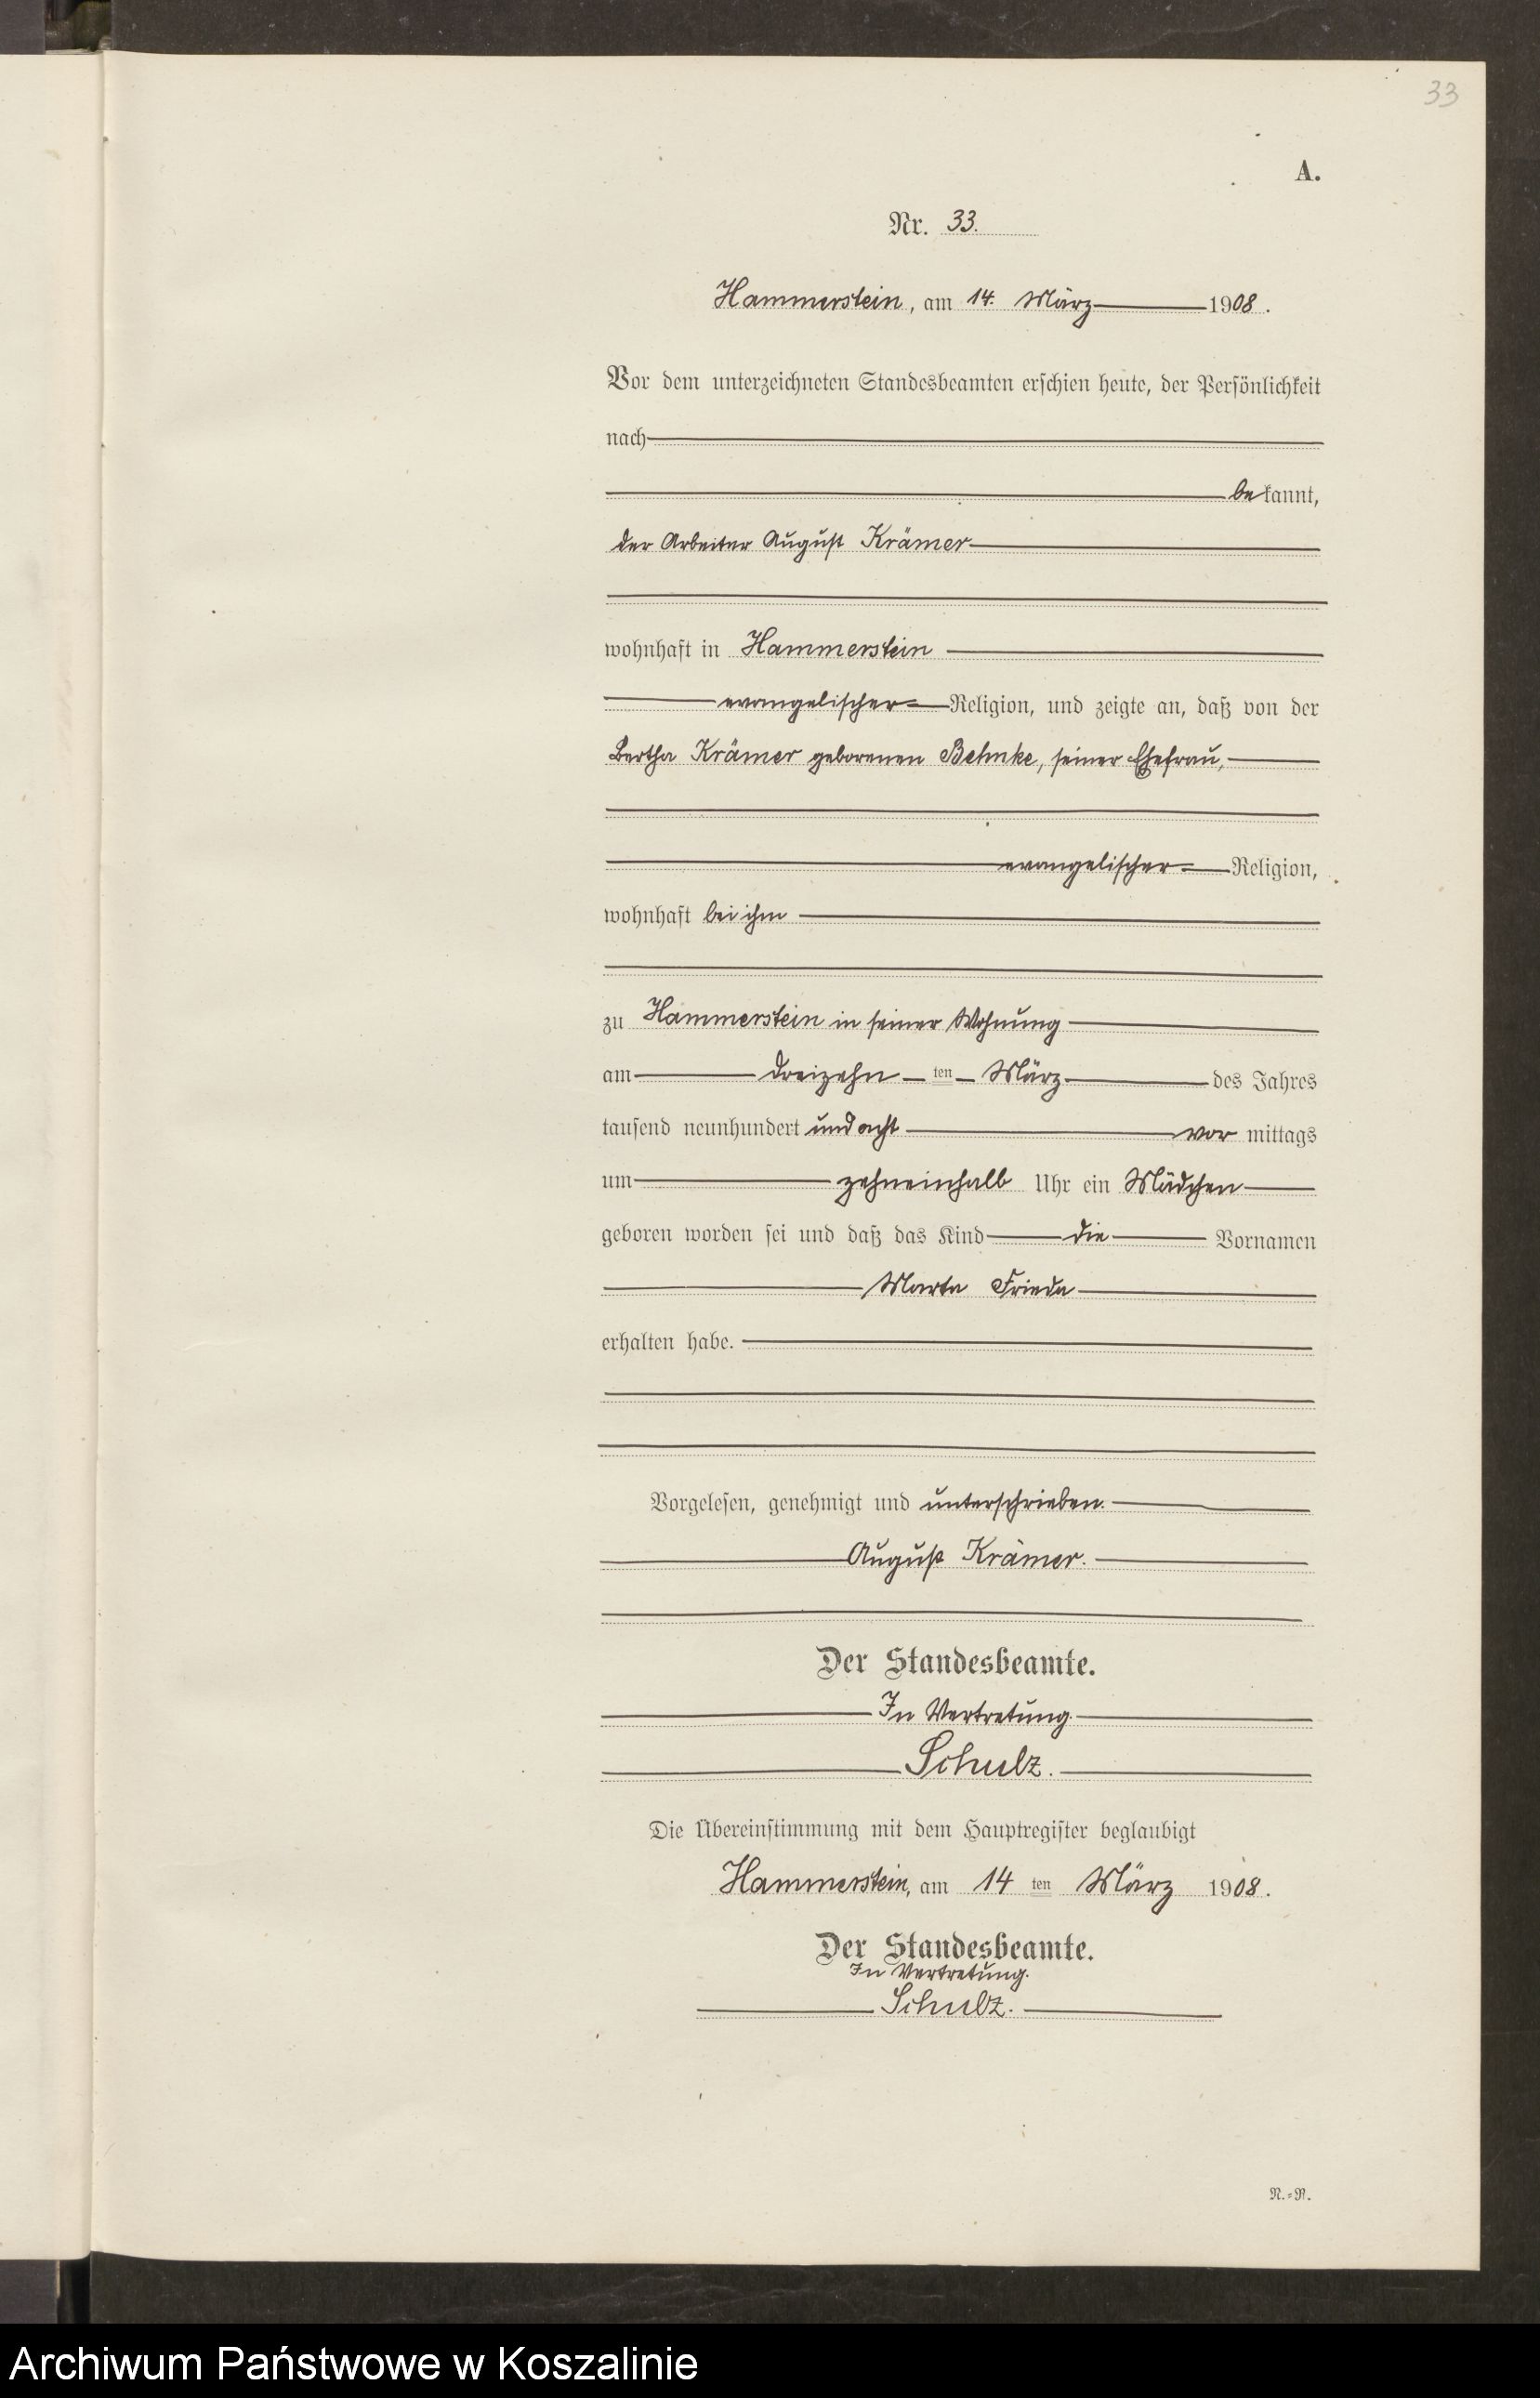 33
A.
Nr. 33.
Hammerstein, am 14. März 1908.
Vor dem unterzeichneten Standesbeamten erschien heute, der Persönlichkeit
nach
bekannt,
der Arbeiter August Krämer
wohnhaft in Hammerstein
evangelischer Religion, und zeigte an, daß von der
Bertha Krämer geborenen Behnke, seiner Ehefrau,
evangelischer Religion,
wohnhaft bei ihm
zu Hammerstein in seiner Wohnung
am dreizehn ten März des Jahres
tausend neunhundert und acht vor mittags
um zehneinhalb Uhr ein Mädchen
geboren worden sei und daß das Kind die Vornamen
Marta Frieda
erhalten habe.
Vorgelesen, genehmigt und unterschrieben.
August Krämer.
Der Standesbeamte.
In Vertretung
Schulz.
Die Übereinstimmung mit dem Hauptregister beglaubigt
Hammerstein, am 14 ten März 1908.
Der Standesbeamte.
In Vertretung.
Schulz.
N.=R.
Archiwum Państwowe w Koszalinie